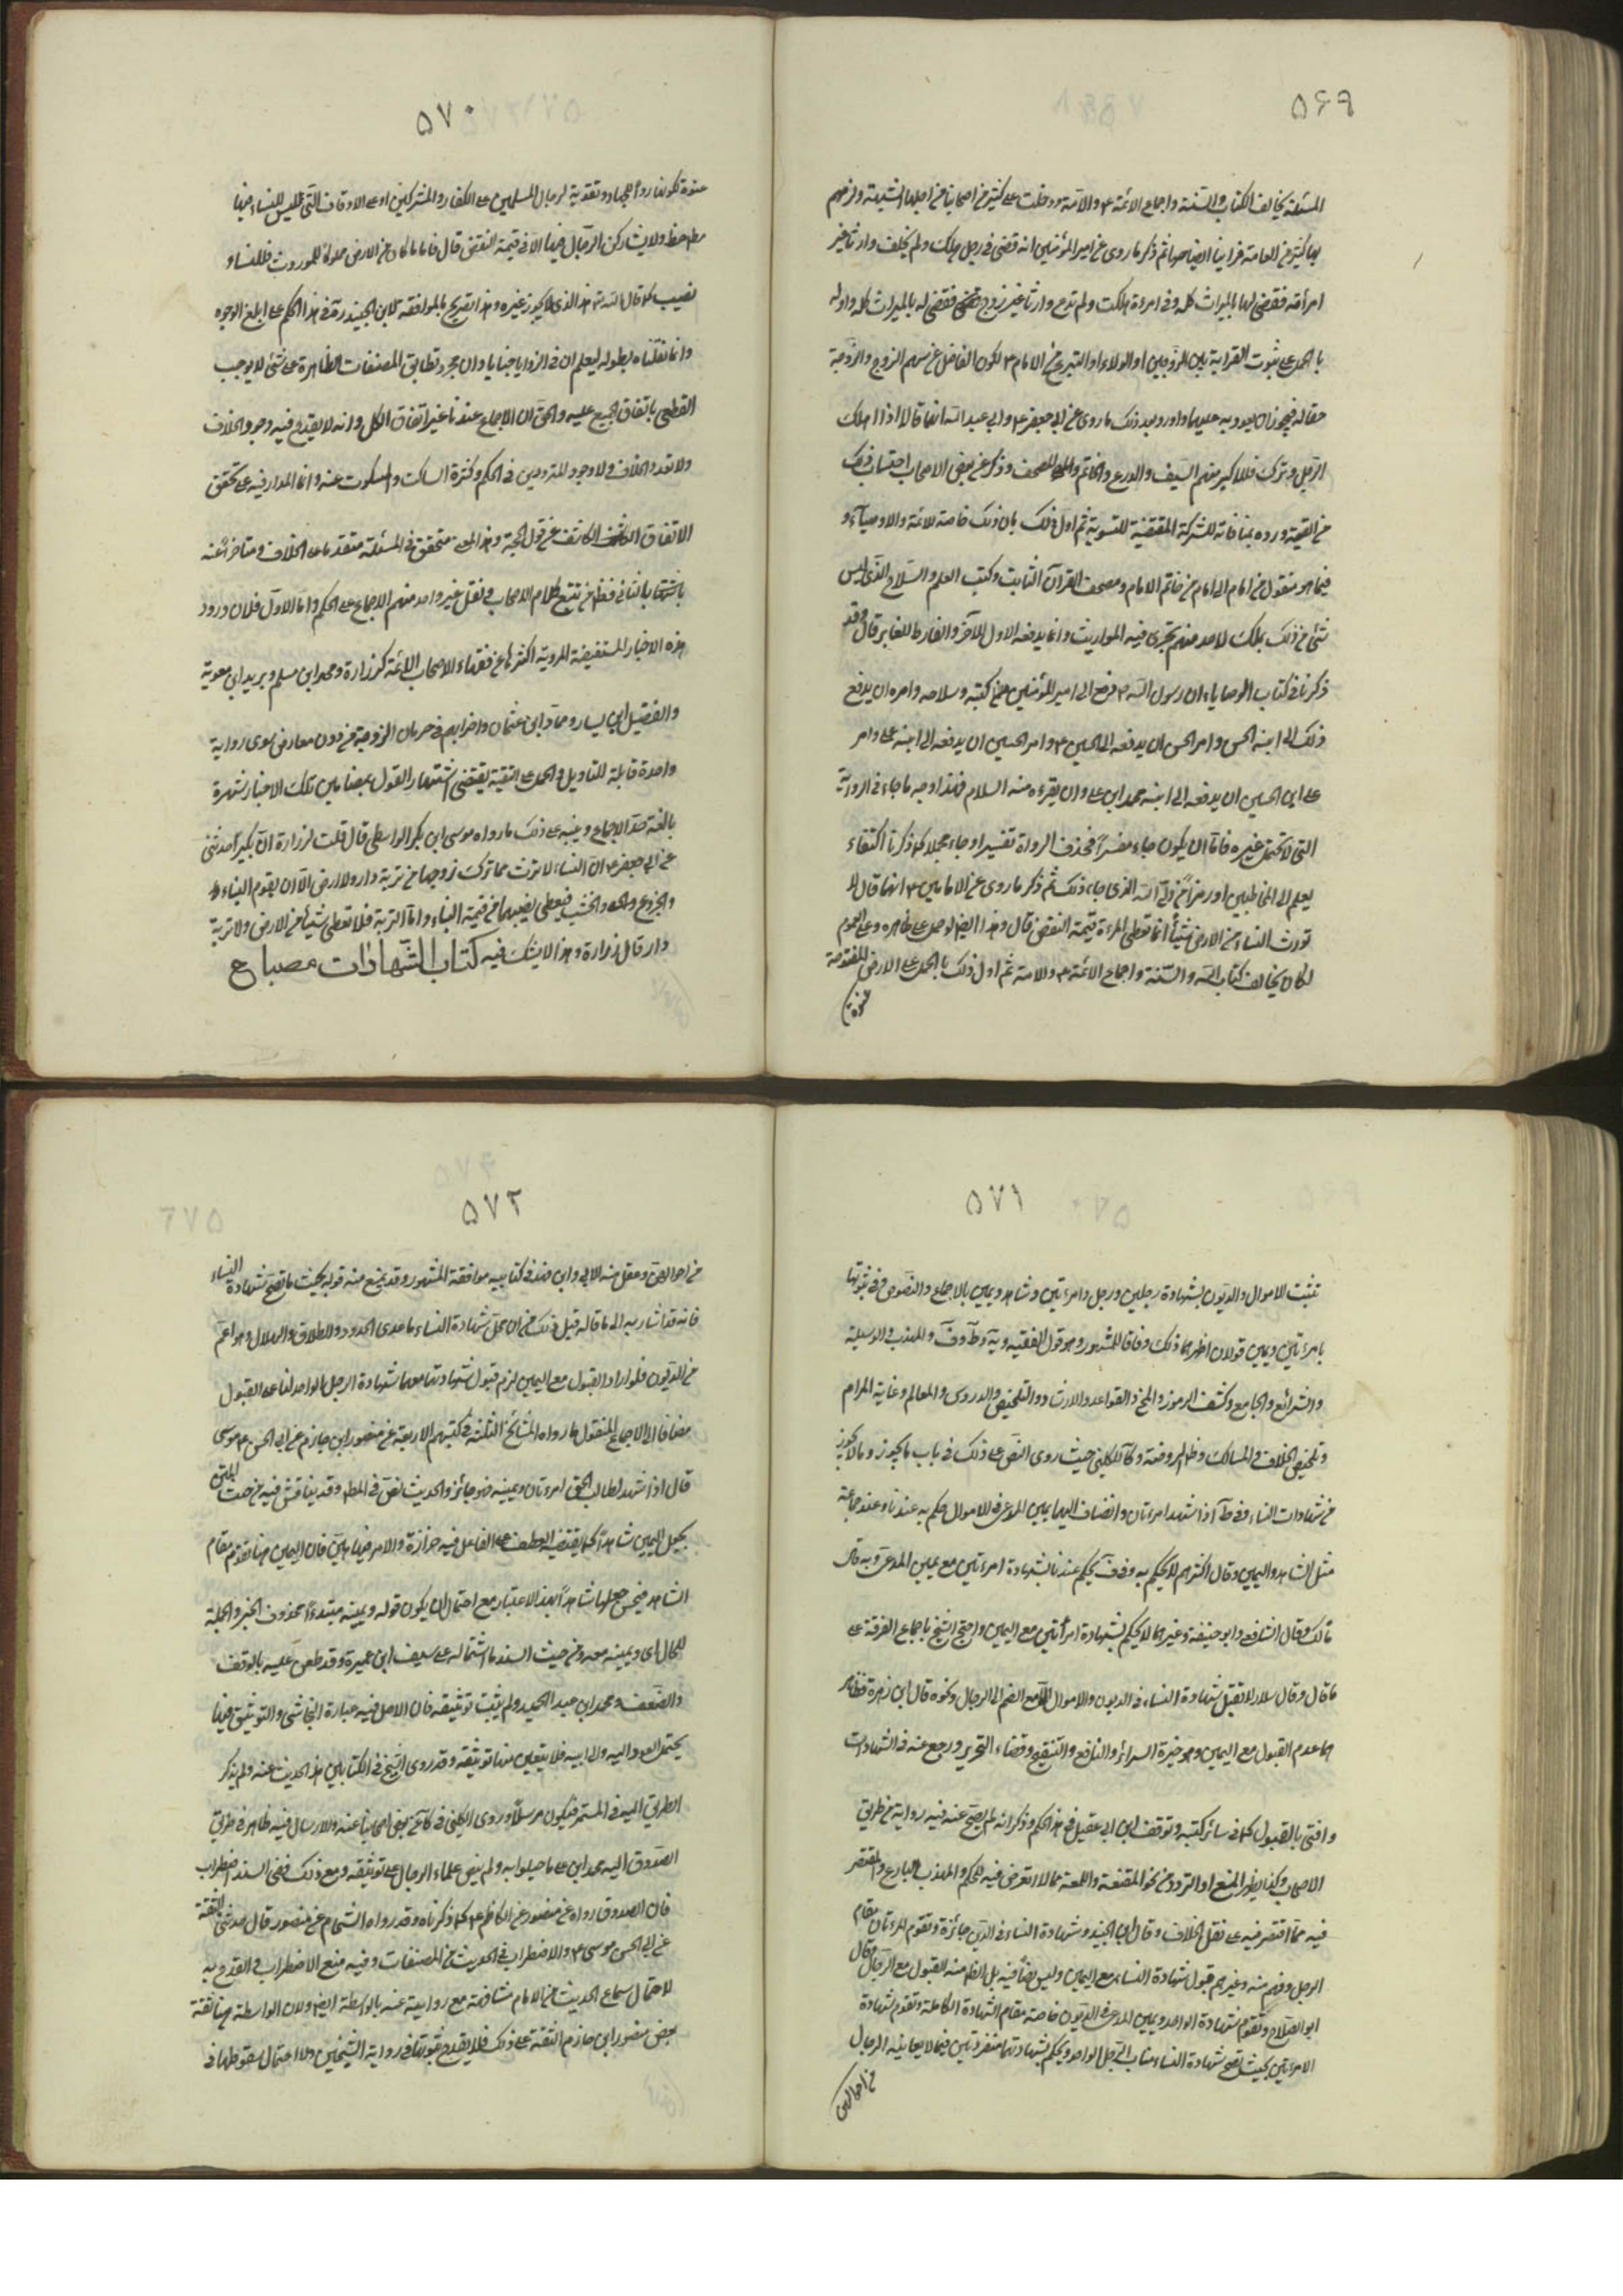 ۵۶۹
المسئلة يخالف الكتاب والسنة واجماع الائمة ع والامة ودخلت على كثير من اصحابنا من اجلها الشنيعة ولزمهم
بها كثير من العامة قرابينا ثم ذكر ما روى عن امير المؤمنين انه قضى في رجل هلك ولم يخلف وارثا غير
امرأته فقضى لها بالميراث كله وفي امرءة هلكت ولم تدع وارثا غير زوج فقضى له بالميراث كله واوله
بالحمل على ثبوت القرابة بين الزوجين او الولاء او التبرع من الامام ع لكون الفاضل عن سهم الزوج والزوجة
حقا له فيجوز ان يعود به عليهما واورد بعد ذلك ما روى عن ابي جعفر ع وابي عبد الله انهما قالا اذا هلك
الرجل وترك فللاكبر منهم السيف والدرع والخاتم والمصحف وذكر عن بعض الاصحاب احتساب ذلك
من القيمة ورده بمنافاته للشركة المقتضية للتسوية ثم اول ذلك بان ذلك خاصة للائمة والاوصياء و
فيما هو منقول من امام الى امام من خاتم الامام ومصحف القرآن الثابت وكتب العلم والسلاح الذي ليس
شئ من ذلك بملك لاحد منهم تجرى فيه المواريث وانما يدفعه الاول للآخر والفارط للغابر قال وقد
ذكرنا في كتاب الوصايا ان رسول الله ص دفع الى امير المؤمنين كتبه وسلاحه وامره ان يدفع
ذلك الى ابنه الحسن وامر الحسن ان يدفعه الى الحسين ع وامر الحسين ان يدفعه الى ابنه على وامر
على ابن الحسين ان يدفعه الى ابنه محمد ابن على وان يقرءه منه السلام فهذا وجه ما جاء في الرواية
التي لا تحتمل غيره فاما ان يكون جاء مفسرا فحذف الرواة تفسيره او جاء مجملا كما ذكرنا اكتفاء
بعلم المخاطبين او رمزا من ولي الله الذي جاء ذلك ثم ذكر ما روى عن الامامين ع انهما قالا لا
تورث النساء من الارض شيئا انما تعطى المرءة قيمة النقض قال وهذا ايضا لو حمل على ظاهره وعلى العموم
لكان يخالف كتاب الله والسنة واجماع الائمة ع والامة ثم اول ذلك بالحمل على الارض المفتوحة
عنوة
۵۷۰
عنوة لكونها ردءا للجهاد وتقوية لرجال المسلمين على الكفار والمشركين او على الاوقاف التي ليس للنساء فيها
حظ ولا يشاركن الرجال فيها الا في قيمة النقض قال فاما ما كان من الارض مملوكا للموروث فللنساء
نصيب كما قال الله هذا الذي لا يجوز غيره وهذا تصريح بالموافقة لابن الجنيد ره في هذا الحكم على ابلغ الوجوه
وانما نقلناه بطوله ليعلم ان في الزوايا خبايا وان مجرد تطابق المصنفات الظاهرة على شئ لا يوجب
القطع باتفاق الجميع عليه والحق ان الاجماع عندنا غير اتفاق الكل وانه لا يقدح فيه وجود الخلاف
ولا تعدد الخلاف ولا وجود المترددين في الحكم وكثرة الساكت والمسكوت عنه وانما المدار فيه على تحقق
الاتفاق الكاشف عن قول الحجة وهذا المعنى متحقق في المسئلة متقدما على الخلاف ومتاخرا عنه
اما الثاني فظ من تتبع كلام الاصحاب في نقل غير واحد منهم الاجماع على الحكم واما الاول فلان ورود
هذه الاخبار المستفيضة المروية اكثرها عن فقهاء الاصحاب الائمة كزرارة ومحمد ابن مسلم وبريد ابن معوية
والفضيل ابن يسار وحماد ابن عثمان واضرابهم في حرمان الزوجة من دون معارض سوى رواية
واحدة قابلة للتاويل والحمل على التقية يقتضي اشتهار القول بمضامين تلك الاخبار شهرة
بالغة حد الاجماع وينبه على ذلك ما رواه موسى ابن بكر الواسطي قال قلت لزرارة ان بكيرا حدثني
عن ابي جعفر ع ان النساء لا ترث مما ترك زوجها من تربة دار ولا ارض الا ان يقوم البناء
والجذوع والخشب فتعطى نصيبها من قيمة البناء واما التربة فلا تعطى شيئا من الارض ولا تربة
دار قال زرارة وهذا لا يشك فيه كتاب الشهادات مصباح
۵۷۱
تثبت الاموال والديون بشهادة رجلين ورجل وامرءتين وشاهد ويمين بالاجماع والنصوص وفي ثبوتها
بامرءتين ويمين قولان اظهرهما ذلك وفاقا للمشهور وهو قول الفقيه ويه وط وف والمهذب والوسيلة
والشرائع والجامع وكشف الرموز والمخ والقواعد والارشاد والتلخيص والدروس والمعالم وغاية المرام
وتلخيص الخلاف والمسالك وظاهر الروضة وكا للكليني حيث روى النص على ذلك في باب ما يجوز وما لا يجوز
من شهادات النساء وفي ط اذا شهد امرءتان وانضاف اليهما يمين المدعي في الاموال حكم به عندنا وعند جماعة
مثل الشاهد واليمين وقال اكثرهم لا يحكم به وفي ف يحكم عندنا بشهادة امرءتين مع يمين المدعي وبه قال
مالك وقال الشافعي وابو حنيفة وغيرهما لا يحكم بشهادة امرأتين مع اليمين واحتج الشيخ باجماع الفرقة على
ما قال وقال سلار لا تقبل شهادة النساء في الديون والاموال الا مع الضم الى الرجال ونحوه قال ابن زهرة فظاهر
هما عدم القبول مع اليمين وهو خيرة السرائر والنافع والتنقيح وقضاء التحرير ورجع عنه في الشهادات
وافتى بالقبول كما في سائر كتبه وتوقف ابن ابي عقيل في هذا الحكم وذكر انه لم يصح عنه فيه رواية من طريق
الاصحاب وكذا يظهر المنع او التردد من نحو المقنعة واللمعة مما لا تعرض فيه للحكم والمهذب البارع والمقتصر
فيه مما اقتصر فيه على نقل الخلاف وقال ابن الجنيد وشهادة النساء في الدين جائزة وتقوم المرءتان مقام
الرجل وفهم منه وغيرهم قبول شهادة النساء مع اليمين وليس نصا فيه بل الظ منه القبول مع الرجال وقال
ابو الصلاح وتقوم شهادة الواحد ويمين المدعي في الديون خاصة مقام الشهادة الكاملة وتقوم شهادة
الامرءتين بحيث تصح شهادة النساء مناب الرجل الواحد ويحكم بشهادتهما منفردتين فيما لا يعاينه الرجال
من احوالهن
۵۷۲
من احوالهن وعقل منه الابي وابن فهد في كتابيه موافقة المشهور وقد يمنع منه قوله بحيث ما تصح شهادة النساء
فانه قد اشار به الى ما قاله قبل ذلك من ان محل شهادة النساء ما عدى الحدود والطلاق والهلال وهو اعم
من الديون فلو اراد القبول مع اليمين لزم قبول شهادتهما معها شهادة الرجل الواحد لنا على القبول
مضافا الى الاجماع المنقول ما رواه المشائخ الثلثة في كتبهم الاربعة عن منصور ابن حازم عن ابي الحسن ع موسى
قال اذا شهد لطالب الحق امرءتان ويمينه فهو جائز والحديث نص في المط وقد يناقش فيه من حيث المتن
بجعل اليمين شاهدا كما يقتضيه العطف على الفاعل فيه حزازة والامر فيها هين فان اليمين هنا تقوم مقام
الشاهد فيحسن جعلها شاهدا بهذا الاعتبار مع احتمال ان يكون قوله ويمينه مبتدءا محذوف الخبر والجملة
للحال اي ويمينه معه ومن حيث السند باشتماله على سيف ابن عميرة وقد طعن عليه بالوقف
والضعف ومحمد ابن عبد الحميد ولم يثبت توثيقه فان الاصل فيه عبارة النجاشي والتوثيق فيها
يحتمل العود اليه والى ابيه فلا يتعين منها توثيقه وقد روى الشيخ في الكتابين هذا الحديث عنه ولم يذكر
الطريق اليه في المستمر فيكون مرسلا وروى الكليني في كا عن بعض اصحابنا عنه والارسال فيه ظاهر في طريق
الصدوق اليه محمد ابن على ماجيلويه ولم ينص علماء الرجال على توثيقه ومع ذلك ففي السند اضطراب
فان الصدوق رواه عن منصور عن الكاظم ع كما ذكرناه وقد رواه الشيخان عن منصور قال حدثني الثقة
عن ابي الحسن موسى ع والاضطراب في الحديث من المضعفات وفيه منع الاضطراب والقدح به
لاحتمال سماع الحديث من الامام مشافهة مع روايته عنه بالواسطة ايضا ولان الواسطة هنا ثقة
بنص منصور ابن حازم الثقة على ذلك فلا يقدح ثبوتها في رواية الشيخين ولا احتمال سقوطها في